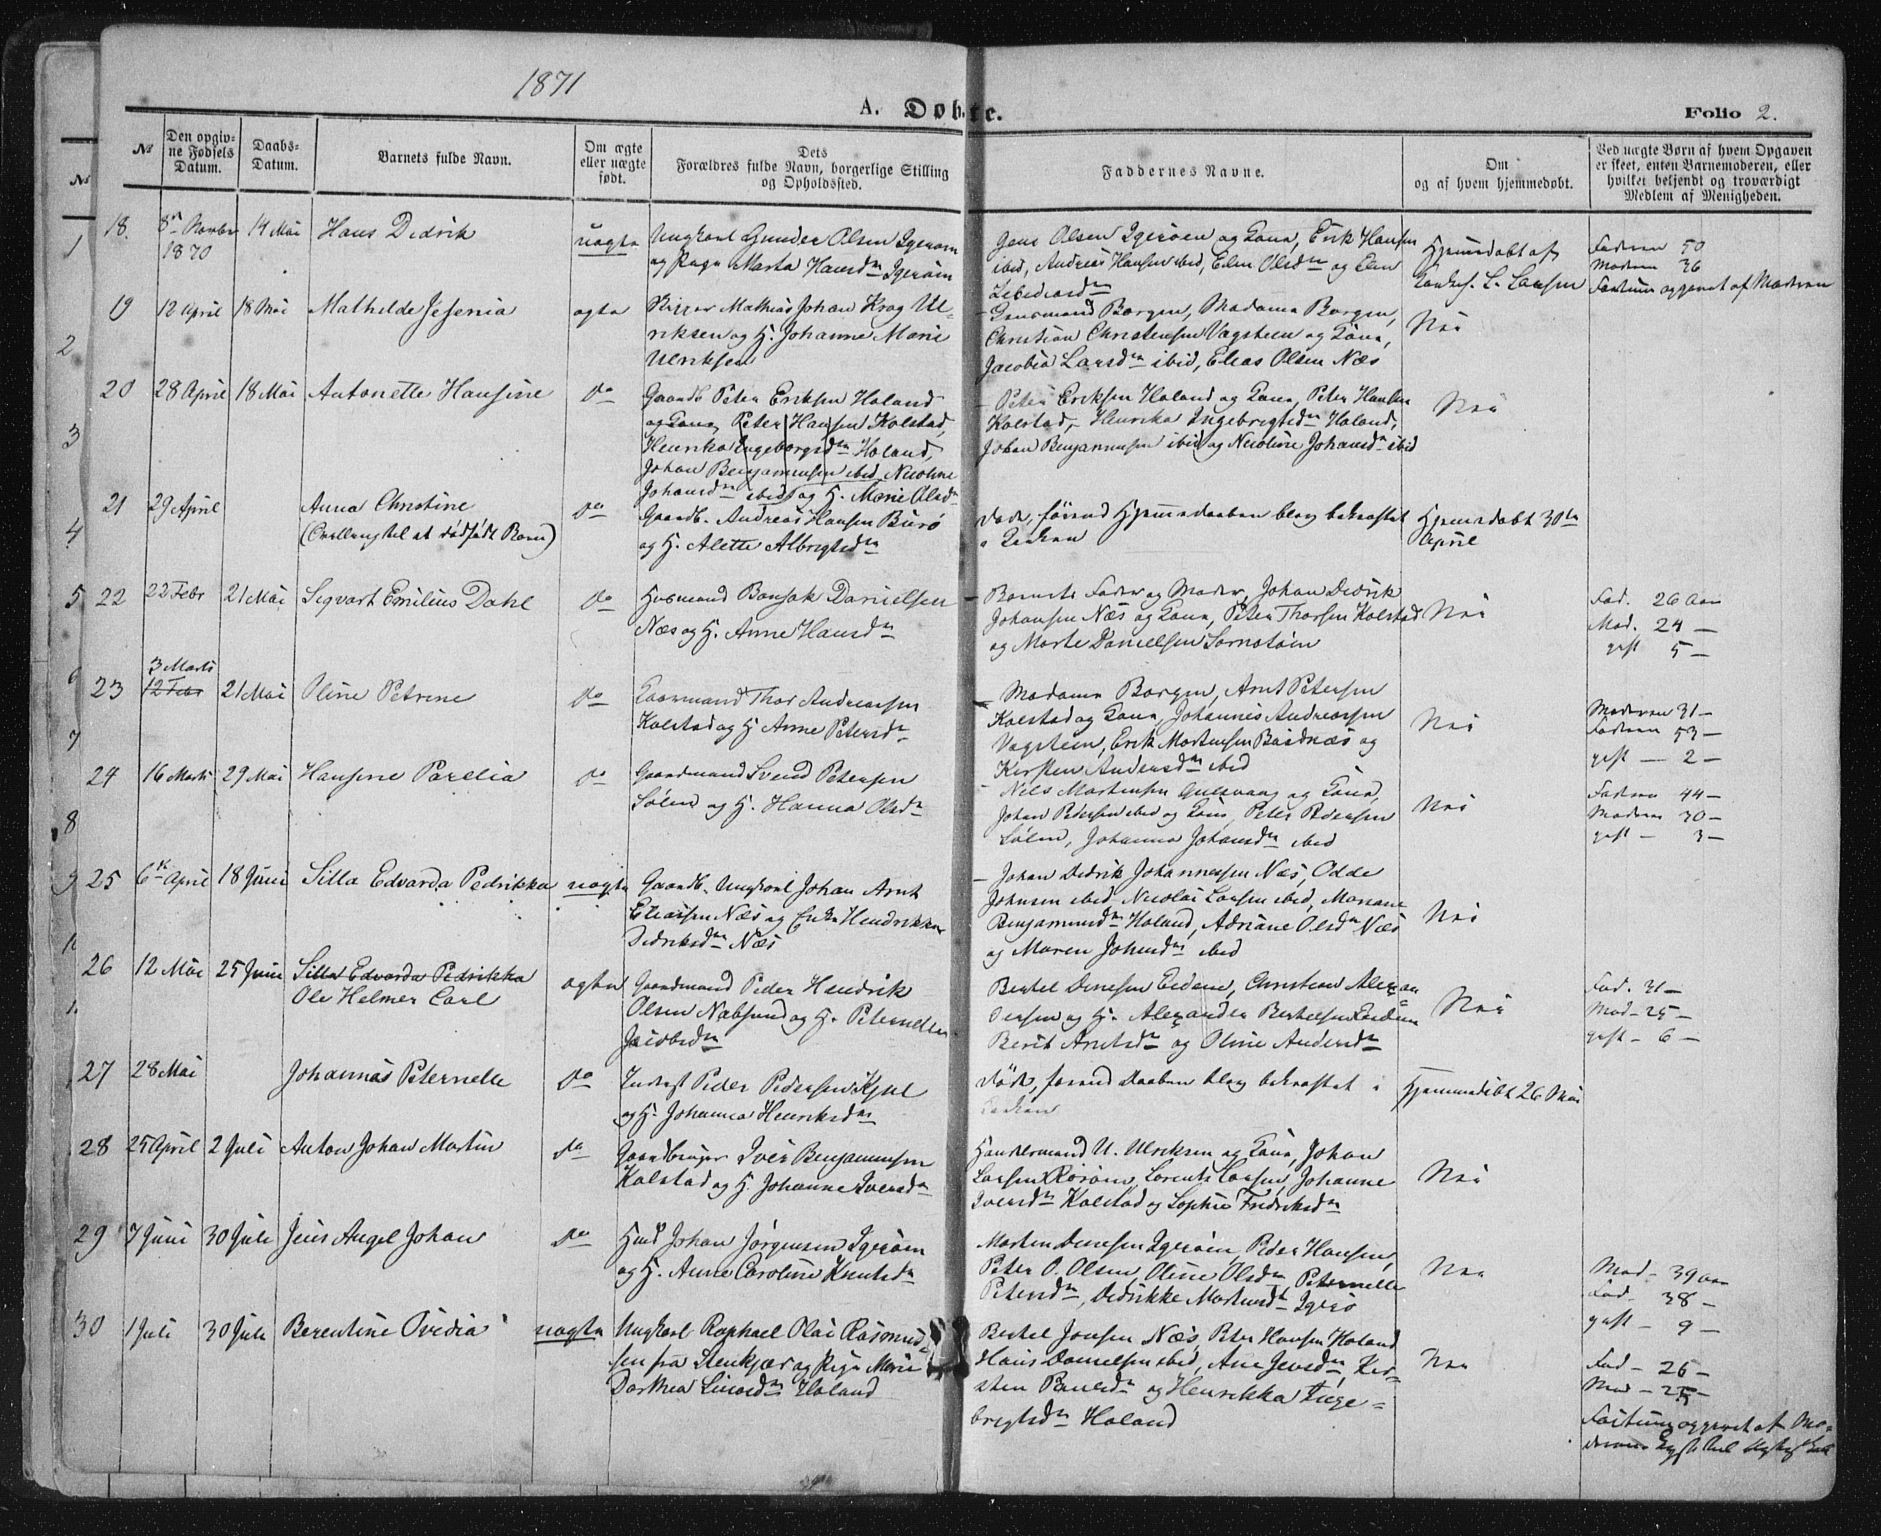 1871
A. Døbte.
Folio 2.
No
Den opgiv-
ne Fødsels
Datum.
Daabs-
Datum.
Barnets fulde Navn.
Om ægte
eller uægte
født.
Dets
Forældres fulde Navn, borgerlige Stilling
og Opholdssted.
Faddernes Navne.
Om
og af hvem hjemmedøbt.
Ved uægte Børn af hvem Opgaven
er skeet, enten Barnemoderen, eller
hvilket bekjendt og troværdigt
Medlem af Menigheden.
18. 14 Mai Hans Didrik uægte
1870
Ungkarl Gunder Olsen Igerøen
og Pige Marta Hansdn Igerøen
Jens Olsen Igerøen og Kona, Erik Hansen
ibid, Andreas Hansen ibid, Elen Olsdn og Elen
Hjemmedøbt af
L. Larsen
Faderen 50
Moderen 36
opgivet af Moderen
19 12 April 18 Mai Mathilde Jesenia ægte
Mathias Johan Krog Ul-
riksen og H. Johanne Marie
Ulriksen
Borgen, Madame Borgen,
Christian Christensen Vagsteen og Kona,
Jacobia Larsdn ibid, Elias Olsen Næs
Nei
20 28 April 18 Mai Antonette Hansine do
Gaardb. Peter Eriksen Holand
og Kona, Peter Hansen Kolstad,
Henrika Ingeborgsdn Holand,
Johan Benjaminsen ibid, Nicoline
Johansdn ibid og H. Marie Olsdn
Peter Eriksen Holand og Kona, Peter Hansen
Kolstad, Henrika Ingebrigtsdn Holand,
Johan Benjaminsen ibid og Nicoline Johansdn ibid
Nei
21 29 April Anna Christine do
(Tvilling til et dødfødt Barn)
Gaardb. Andreas Hansen Burø
og H. Alette Albrigtsdn
død, førend Hjemmedaaben blev bekræftet
i Kirken
Hjemedøbt 30te
April
22 22 Febr 21 Mai Sigvart Emilius Dahl do
Husmand Bonsak Danielsen
Næs og H. Anne Hansdn
Barnets Fader og Moder, Johan Didrik
Johansen Næs og Kona, Peter Thorsen Kolstad
og Marte Danielsen
Nei
Fad. 26 Aar
Mod. 24 —
gift 5 —
3 Marts
23 12 Febr 21 Mai Oline Petrine do
Gaardmand Thor Andreassen
Kolstad og H. Anne Petersdn
Madame Borgen, Arnt Petersen
Kolstad og Kona, Johannes Andreassen
Vagsteen, Erik Mortensen Baidnæs og
Kirsten Andersdn ibid
Nei
Moderen 31 —
Faderen 53 —
gift — 2 —
24 16 Marts 29 Mai Hansine Parelia do
Gaardmand Svend Petersen
Sølen og H. Hanna Olsdn
Nils Mortensen Gulsvaag og Kona,
Johan Pedersen ibid og Kona, Peter Pedersen
Sølen, Johanna Johansdn ibid
Nei
Faderen 44 —
Moderen 30 —
gift — 3 —
25 6te April 18 Juni Silla Edvarda Pedrikka uægte
Gaardb. Ungkarl Johan Arnt
Eliassen Næs og Enke Hendrikka
Didriksdn Næs
Johan Didrik Johannesen Næs, Odde
Johnsen ibid, Nicolai Larsen ibid, Mariane
Benjaminsdn Holand, Adriane Olsdn Næs
og Maren Johnsdn ibid
Nei
26 12 Mai 25 Juni Silla Edvarda Pedrikka
Ole Helmer Carl ægte
Gaardmand Peder Hendrik
Olsen Næbsund og H. Peternelle
Jacobsdn
Bertel Densen Eidene, Christian Alexan-
dersen og H. Alexander Bertelsen Eidene
Berit Arntsdn og Oline Andersdn
Nei
Fad. 31 —
Mod — 25 —
gift — 6 —
27 28 Mai Johannes Peternelle do
Inderst Peder Pedersen
og H. Johanna Henriksdn
død, førend Daaben blev bekræftet i
Kirken
Hjemmedøbt 26 Mai
28 25 April 2 Juli Anton Johan Martin do
Gaardbruger Iver Benjaminsen
Kolstad og H. Johanne Iversdn
Handelsmand U. Ulriksen og Kona, Johan
Larsen Rørøen, Lorents Larsen, Johanne
Iversdn Kolstad og Sophie Fredriksdn
Nei
29 7 Juni 30 Juli Jens Angel Johan do
Husm Johan Jørgensen Igerøen
og H. Anne Caroline Knutsdn
Morten Densen Igerøen, Peder Hansen,
Peter O. Olsen, Oline Olsdn, Peternelle
Petersdn, Didrikke Mortensdn Igerø
Nei
Mod — 39 aar
Fad — 38 —
gift — 9 —
30 1 Juli 30 Juli Berentine Ovidia uægte
Ungkarl Raphael Olai Rasmus-
sen fra Stenkjær og Pige Marie
Dorthea Holand
Bertel Jonsen Næs, Peter Hansen Holand
Hans Danielsen ibid, Ane Jensdn, Kir-
sten Paulsdn og Henrikka Inge-
brigtsdn Holand
Nei
Fad — 26 —
Mod — 25 —
opgivet af Mo-